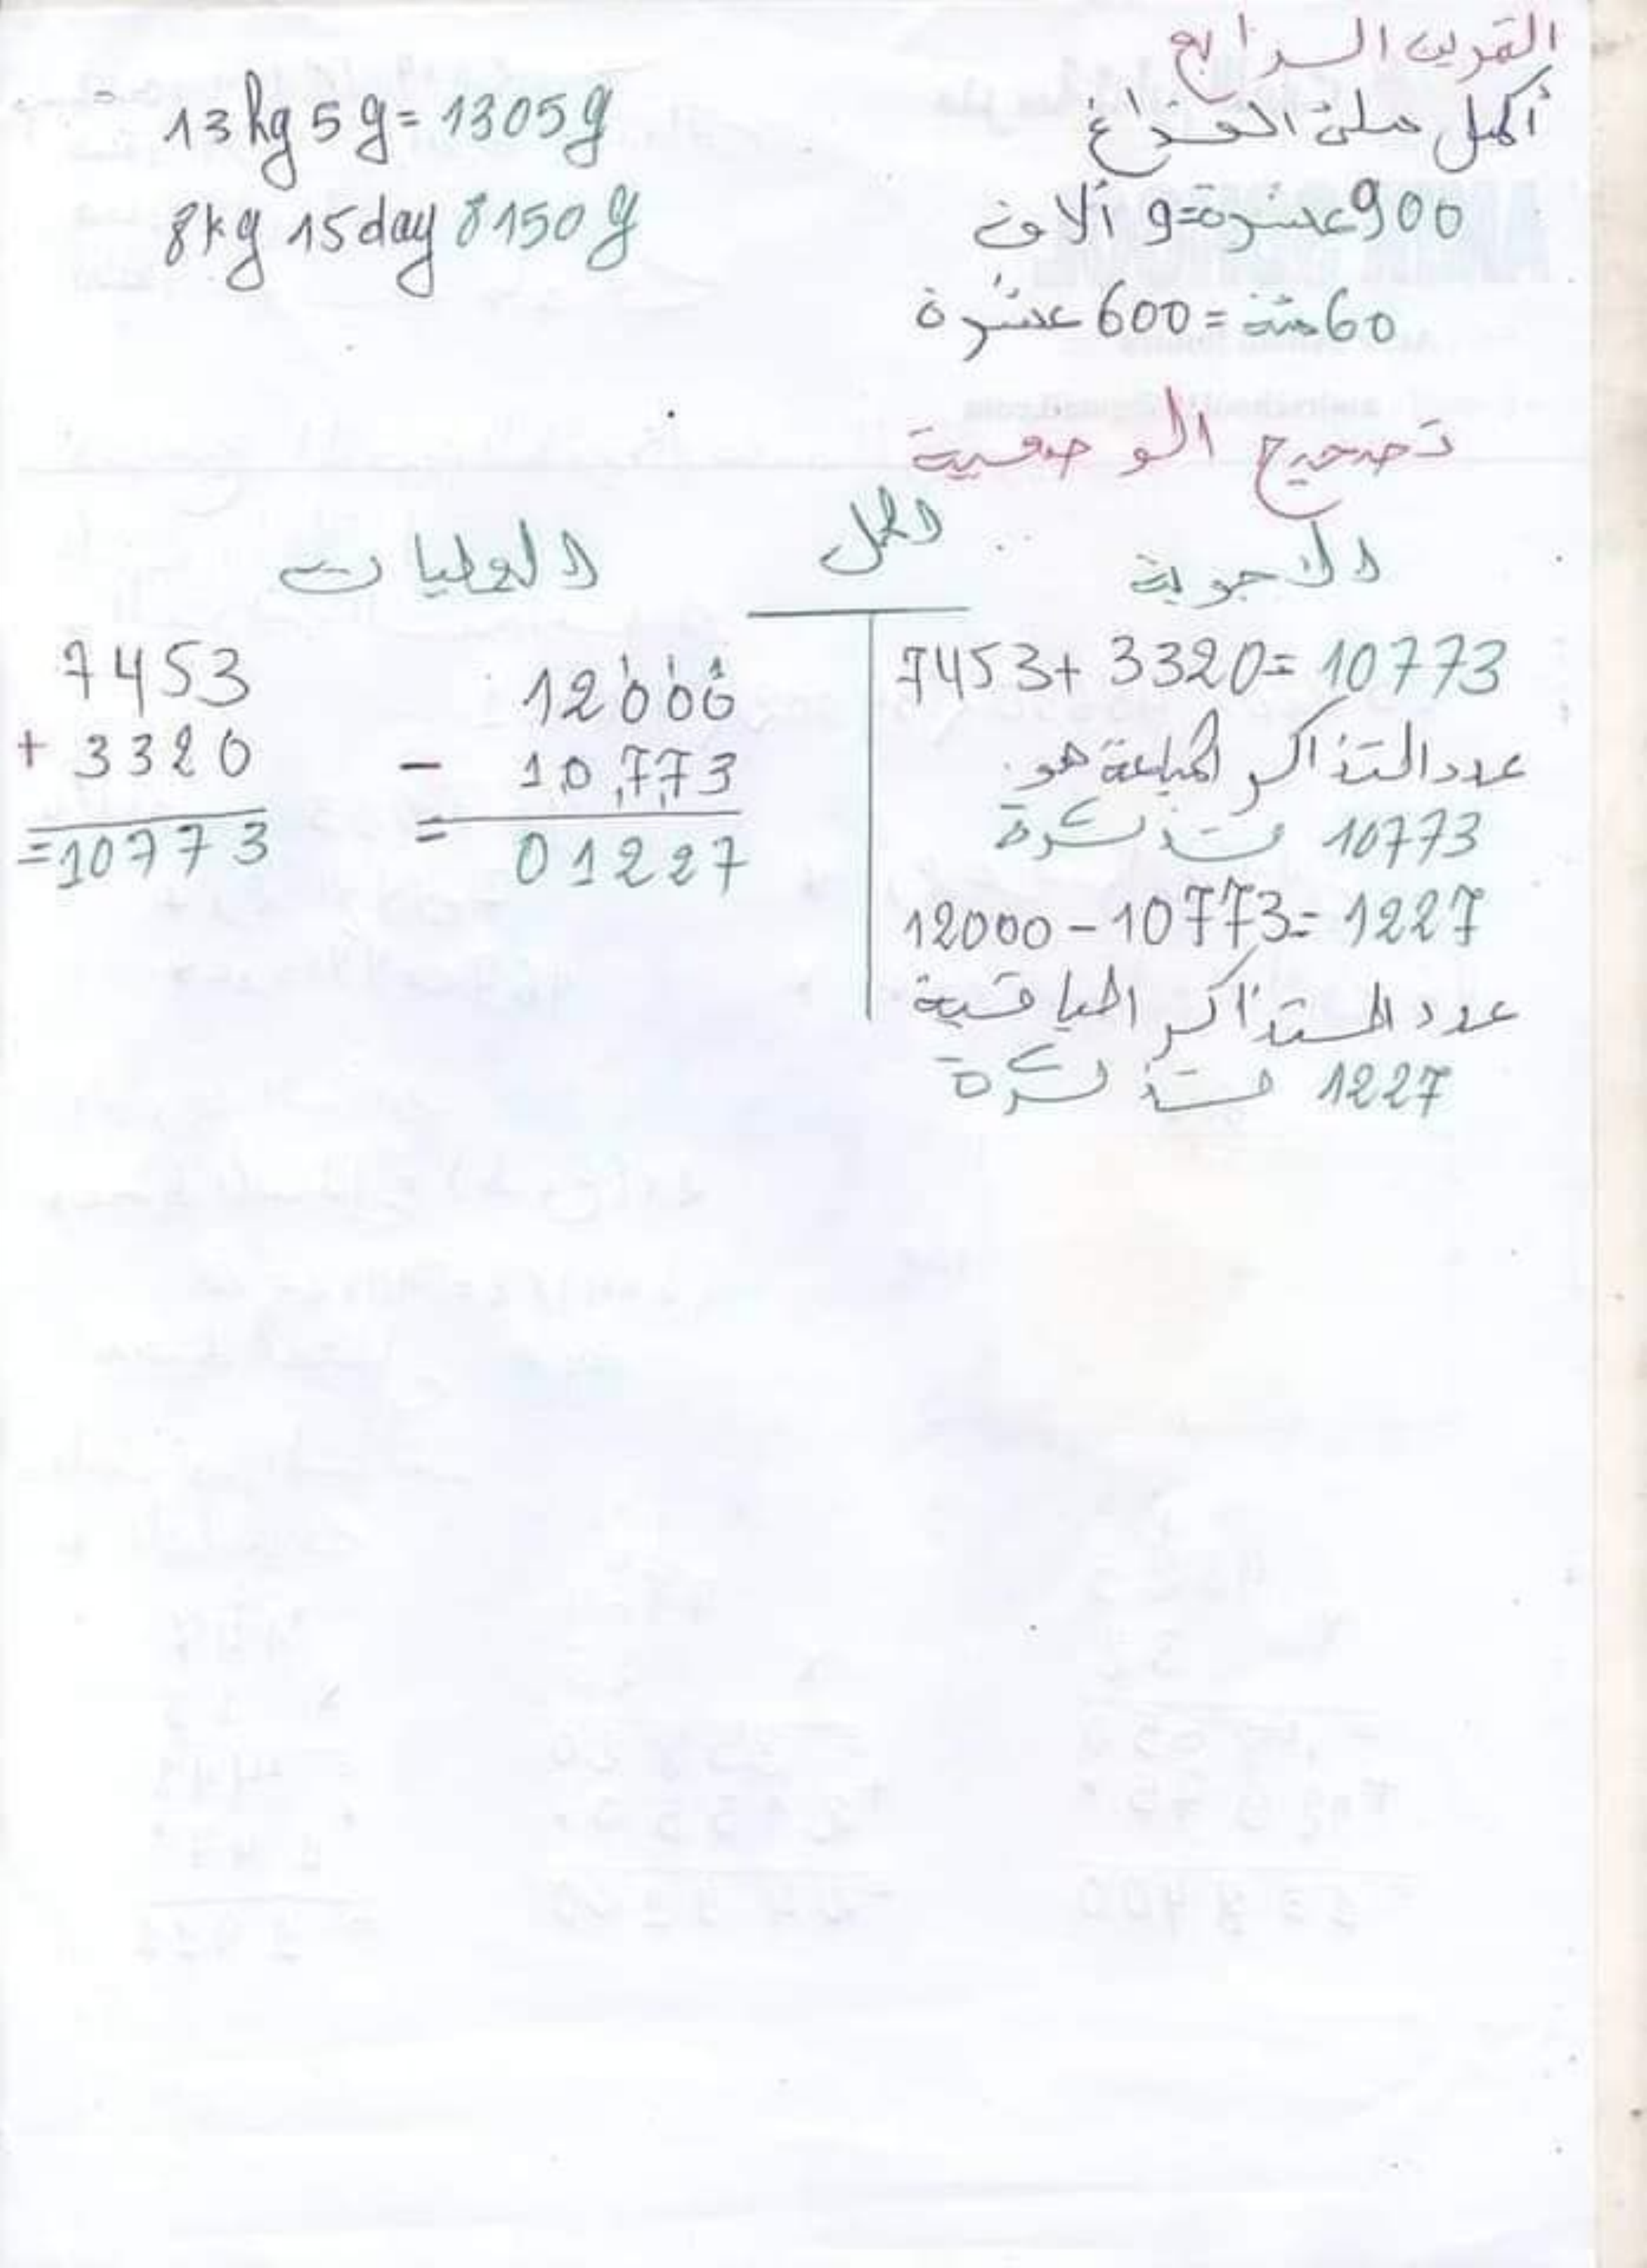 التمرين الرابع
أكمل ملئ الفراغ
900 عشرة = 9 ألاف
60 مئة = 600 عشرة
13 hg 5 g = 1305 g
8 kg 15 dag 8150 g
تصحيح الوضعية
الحل
الاجوبة
7453 + 3320 = 10773
عدد التذاكر المباعة هو
10773 تذكرة
12000 - 10773 = 1227
عدد التذاكر الباقية
1227 تذكرة
العمليات
12000
- 10773
= 01227
7453
+ 3320
= 10773